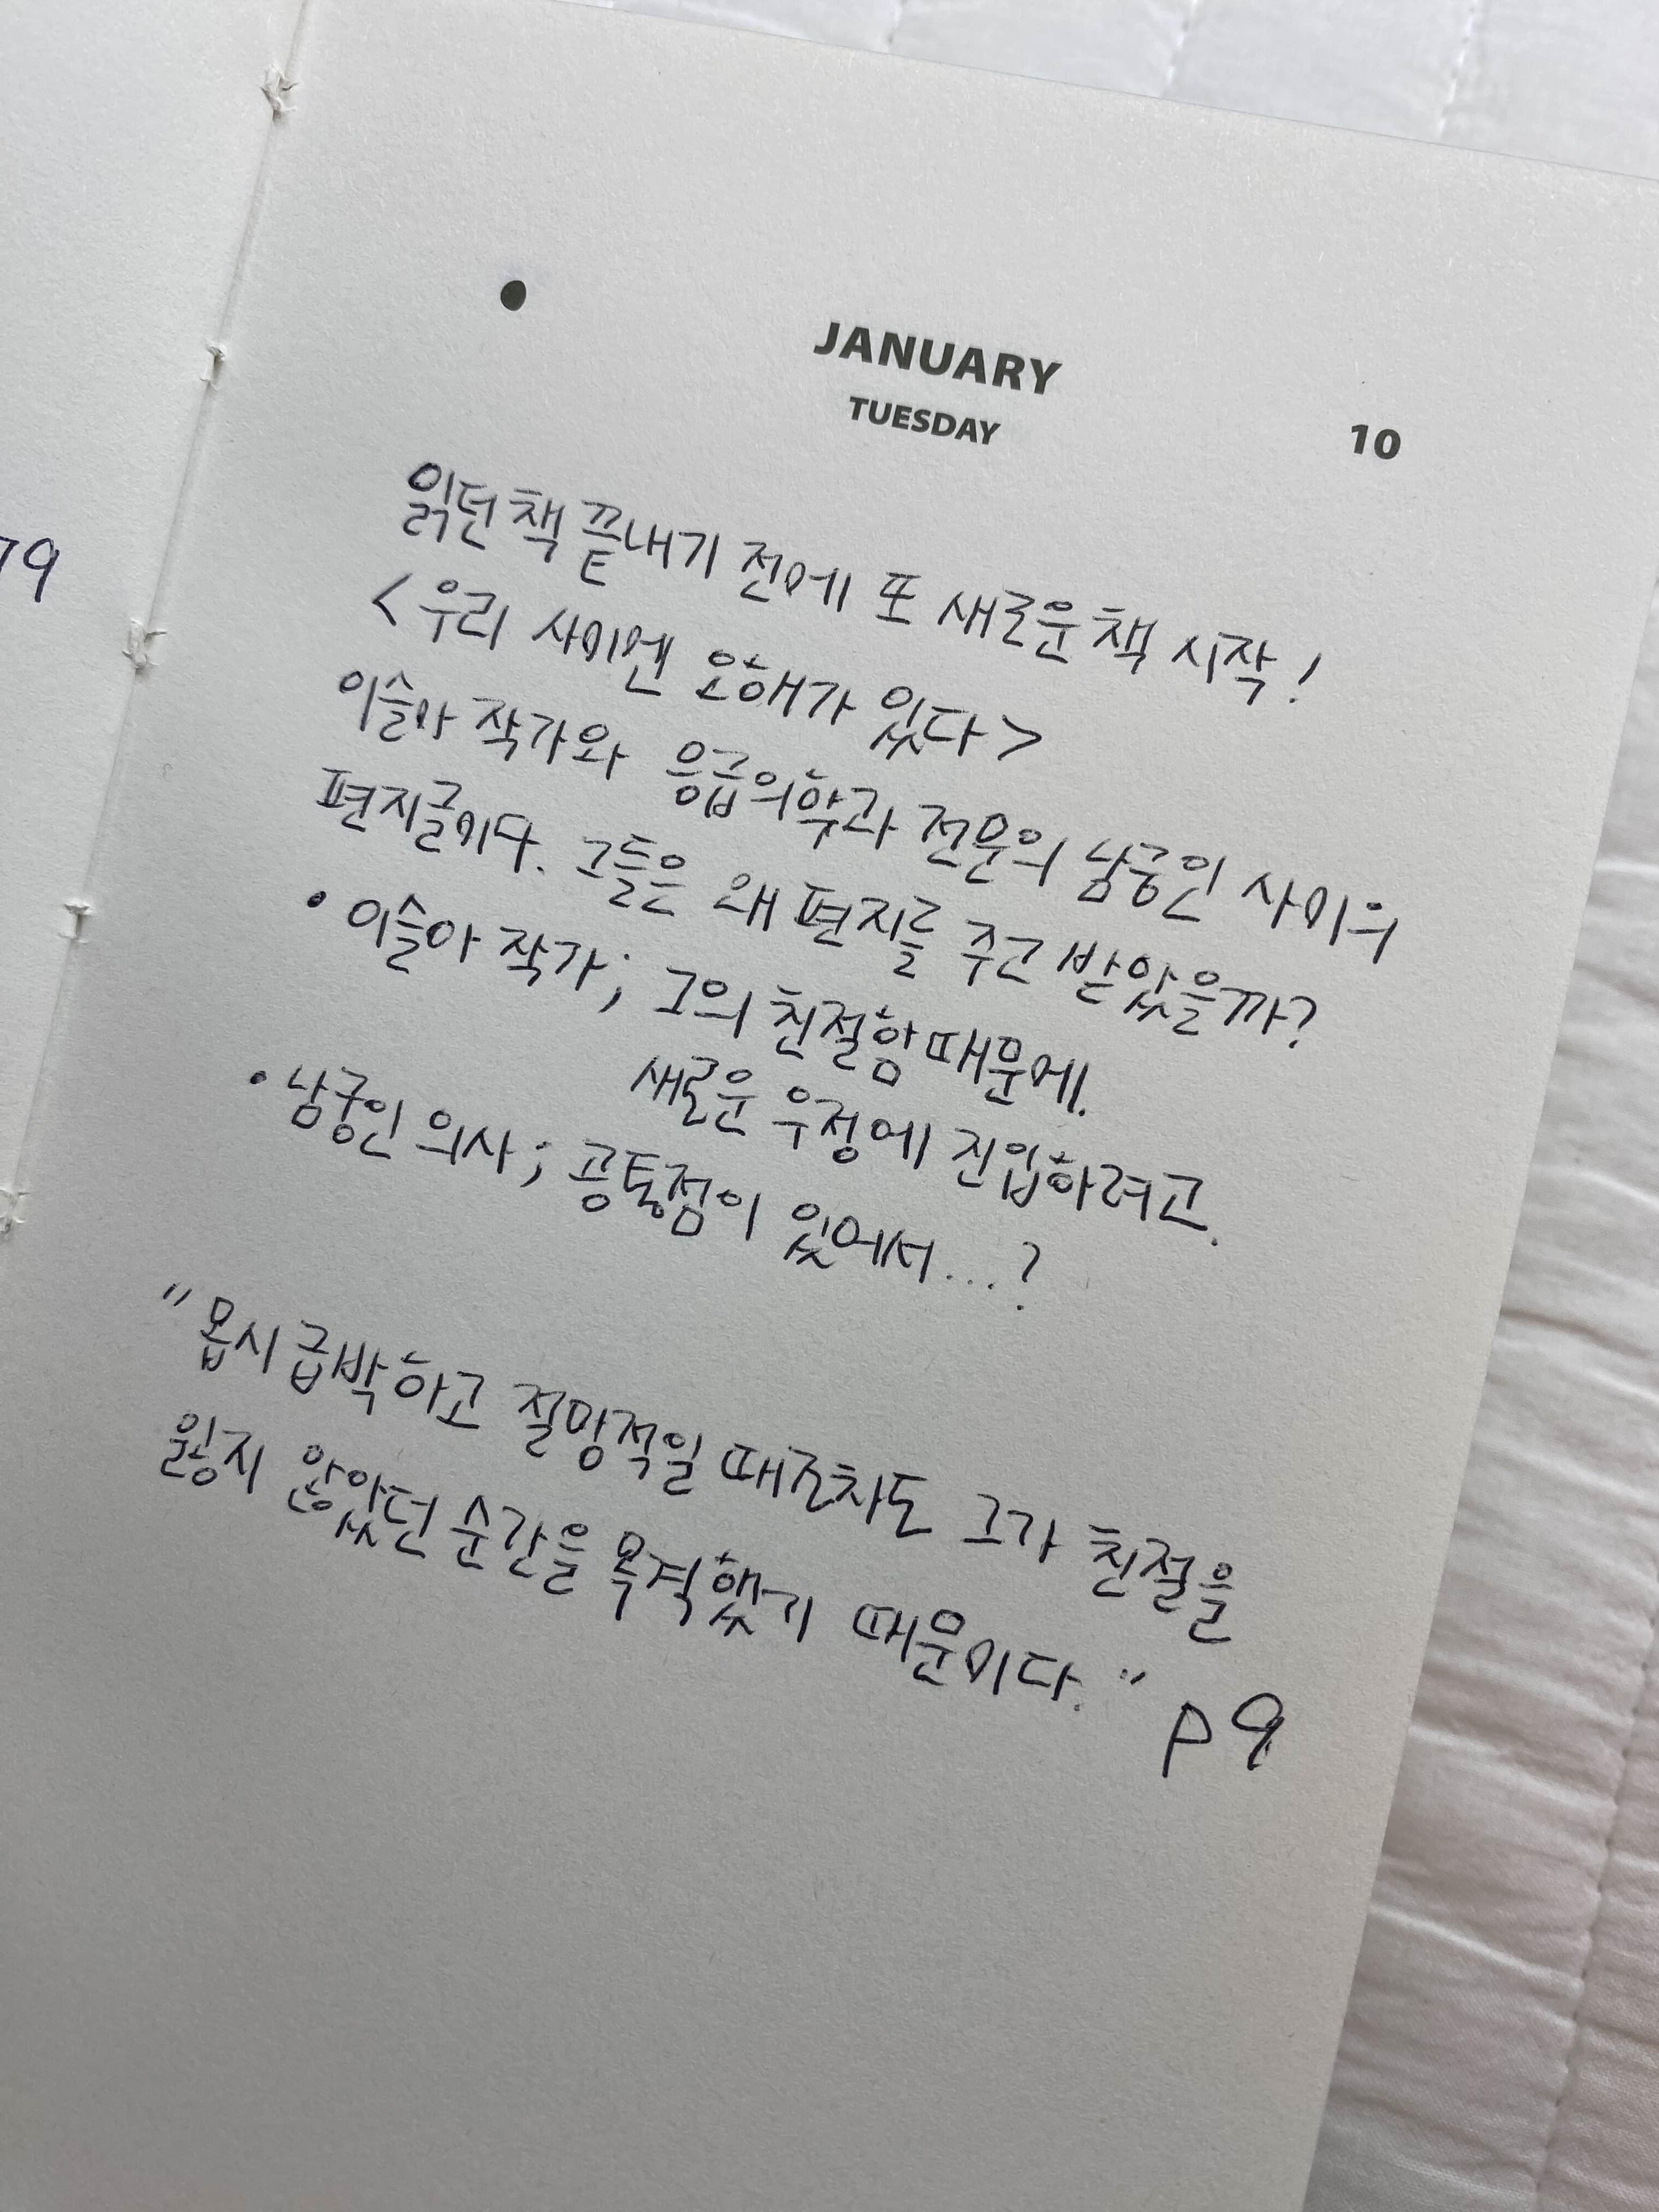 79
JANUARY
TUESDAY
10
읽던 책 끝내기 전에 또 새로운 책 시작!
<우리 사이엔 오해가 있다>
이슬아 작가와 응급의학과 전문의 남궁인 사이의
편지글이다. 그들은 왜 편지를 주고 받았을까?
• 이슬아 작가; 그의 친절함 때문에.
새로운 우정에 진입하려고.
• 남궁인 의사; 공통점이 있어서...?
"몹시 급박하고 절망적일 때조차도 그가 친절을
잃지 않았던 순간을 목격했기 때문이다." p9